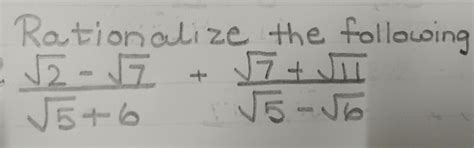 Rationalize the following
√2 - √7 / √5 + 6 + √7 + √11 / √5 - √6